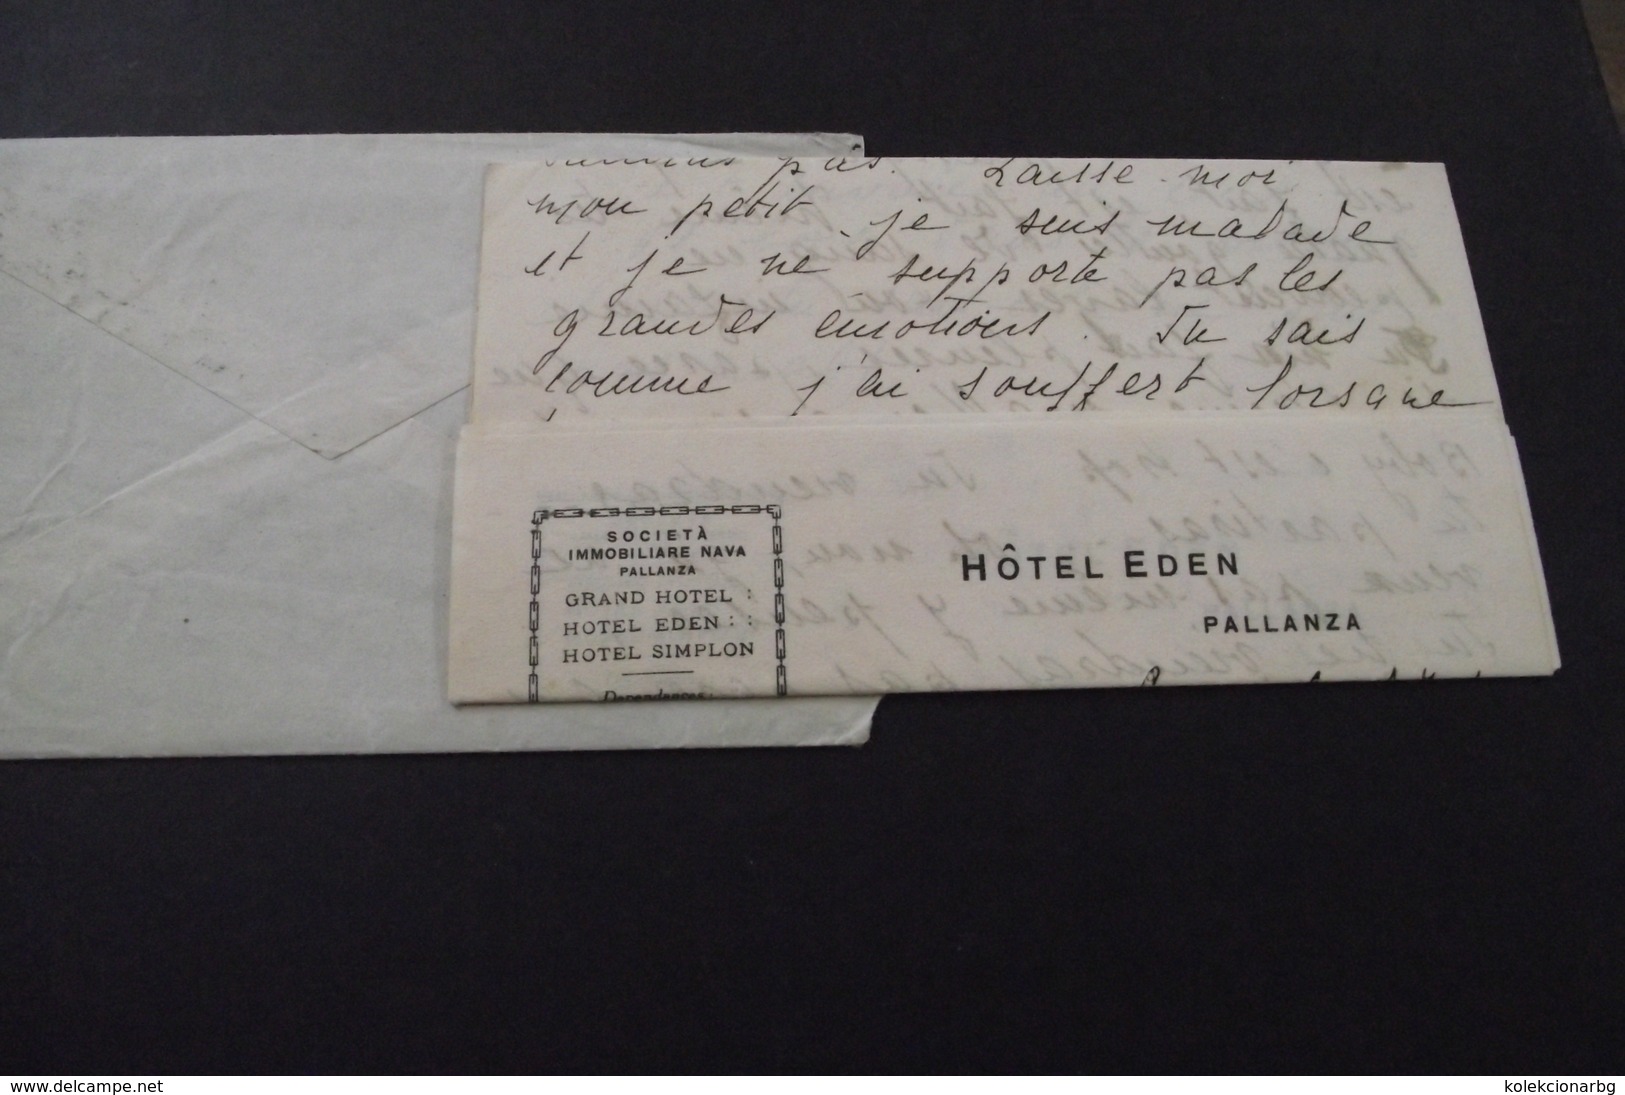 pas. Laisse-moi
mon petit, je suis malade
et je ne supporte pas les
grandes émotions. Tu sais
comme j'ai souffert lorsque
SOCIETÀ
IMMOBILIARE NAVA
PALLANZA
GRAND HOTEL :
HOTEL EDEN : :
HOTEL SIMPLON
Dependances:
HÔTEL EDEN
PALLANZA
www.delcampe.net
kolekcionarbg